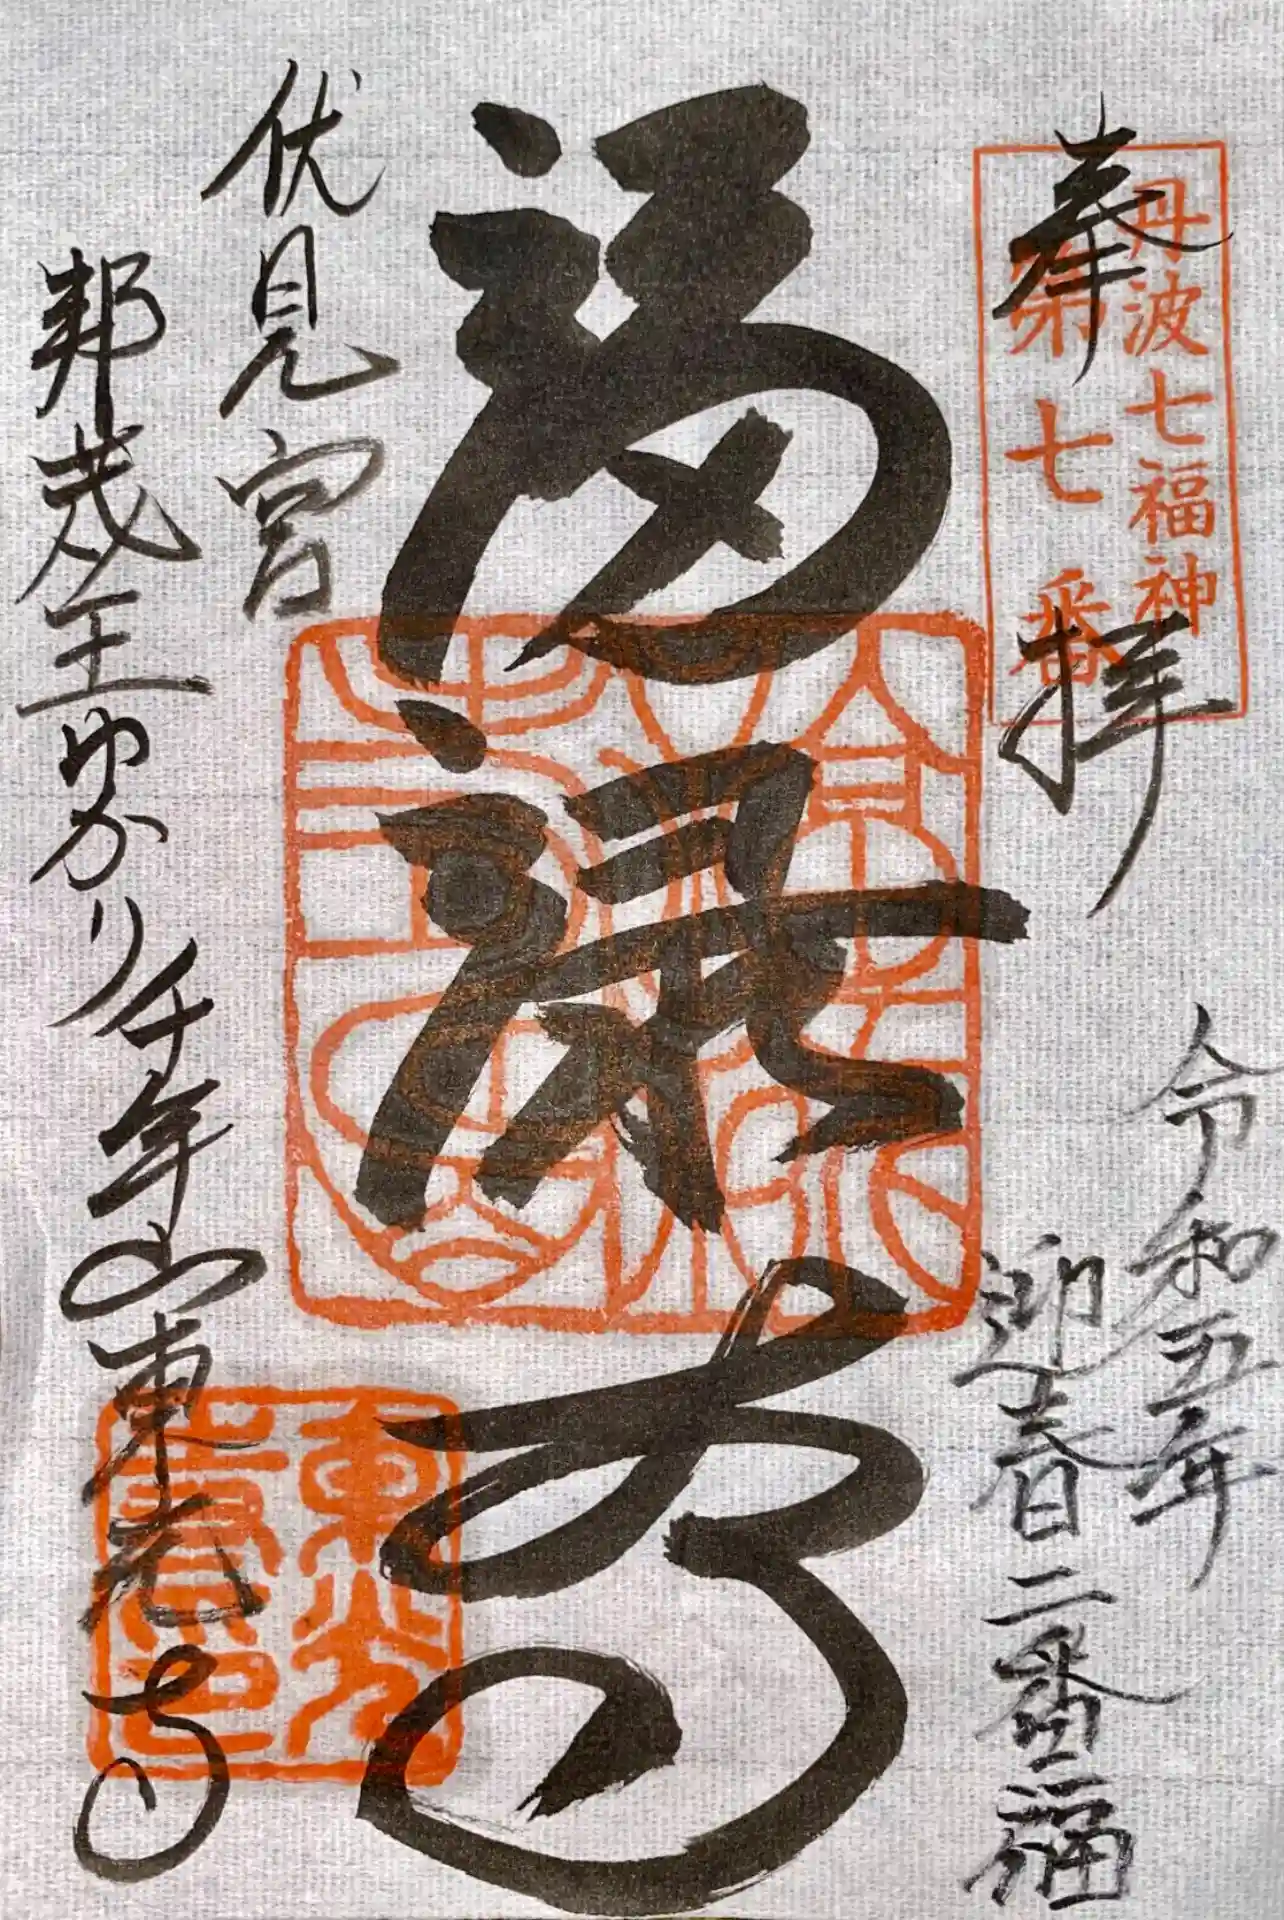 奉拝
丹波七福神
第七番
令和五年
迎春二番福
福禄寿
伏見宮
邦茂王ゆかり千年山東光寺
東光
寺印